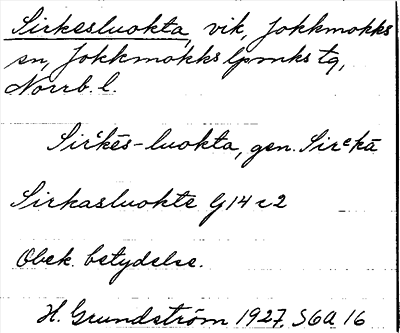 Sirkesluokta, vik, Jokkmokks
sn, Jokkmokks lpmks tg,
Norrb. l.
Sirᵋkēs-luokta, gen. Sirᵋkā
Sirkasluokte G14 c2
Obek. betydelse.
H. Grundström 1927, SGA 16